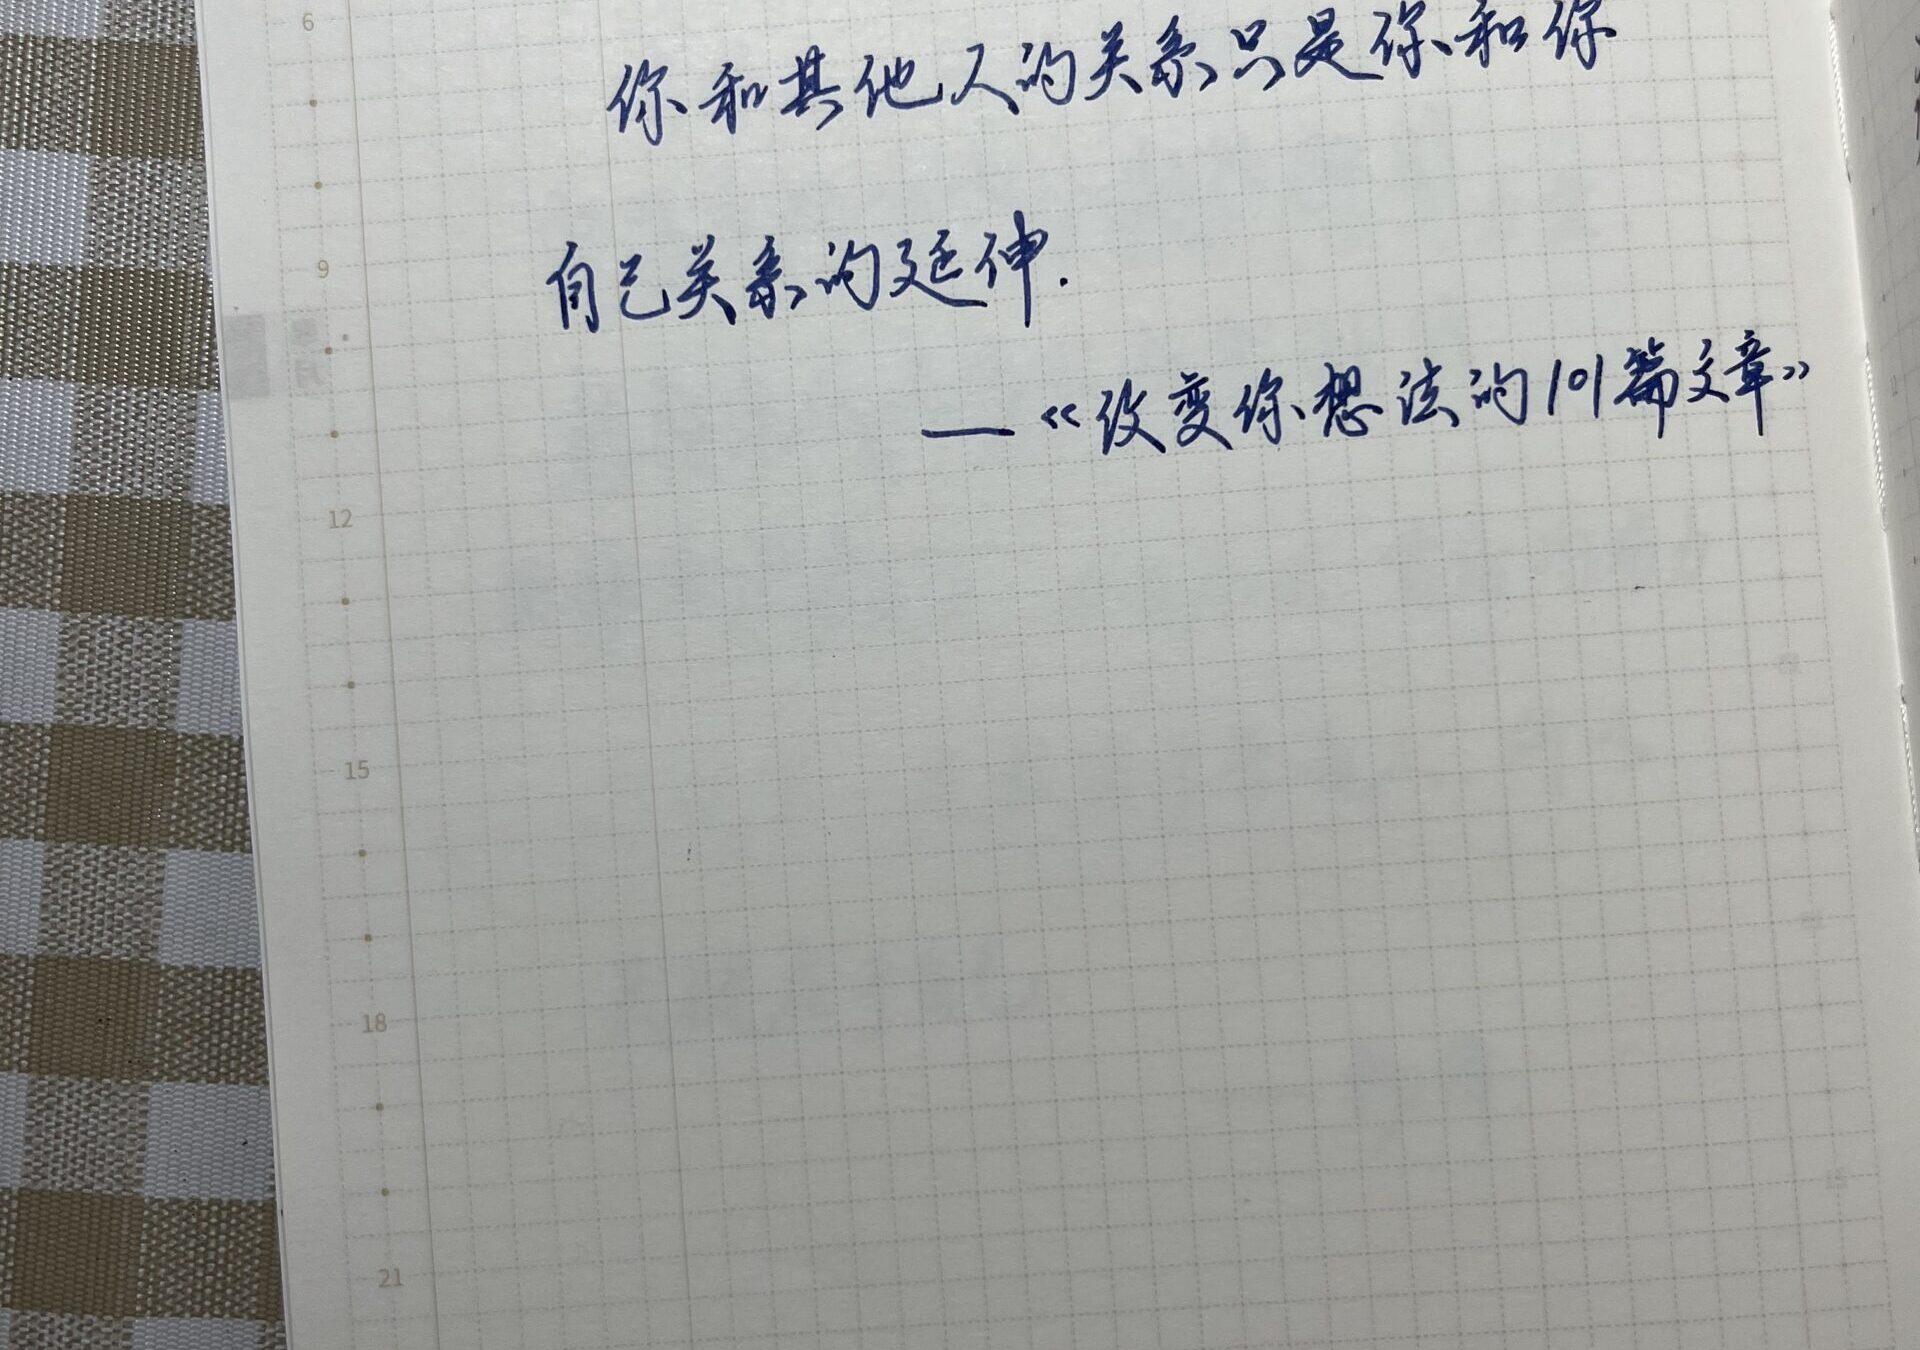 6
你和其他人的关系只是你和你
9
自己关系的延伸.
—《改变你想法的101篇文章》
12
15
18
21